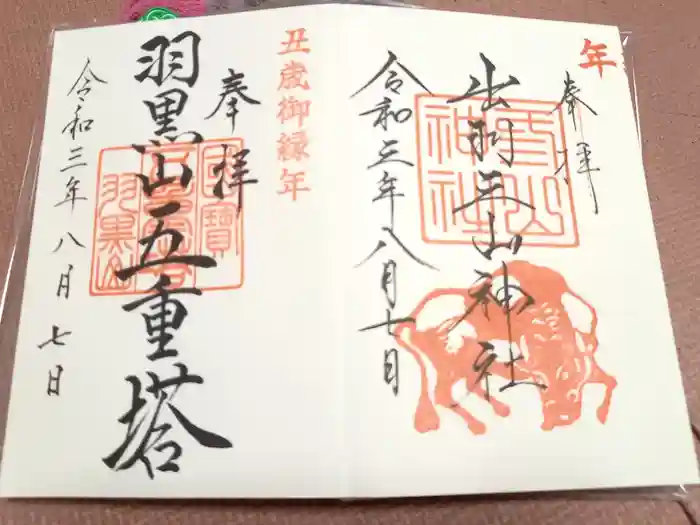 年
奉拝
出羽三山神社
三山神社
令和三年八月七日
丑歳御縁年
奉拝
羽黒山五重塔
国寶
羽黒山
令和三年八月七日